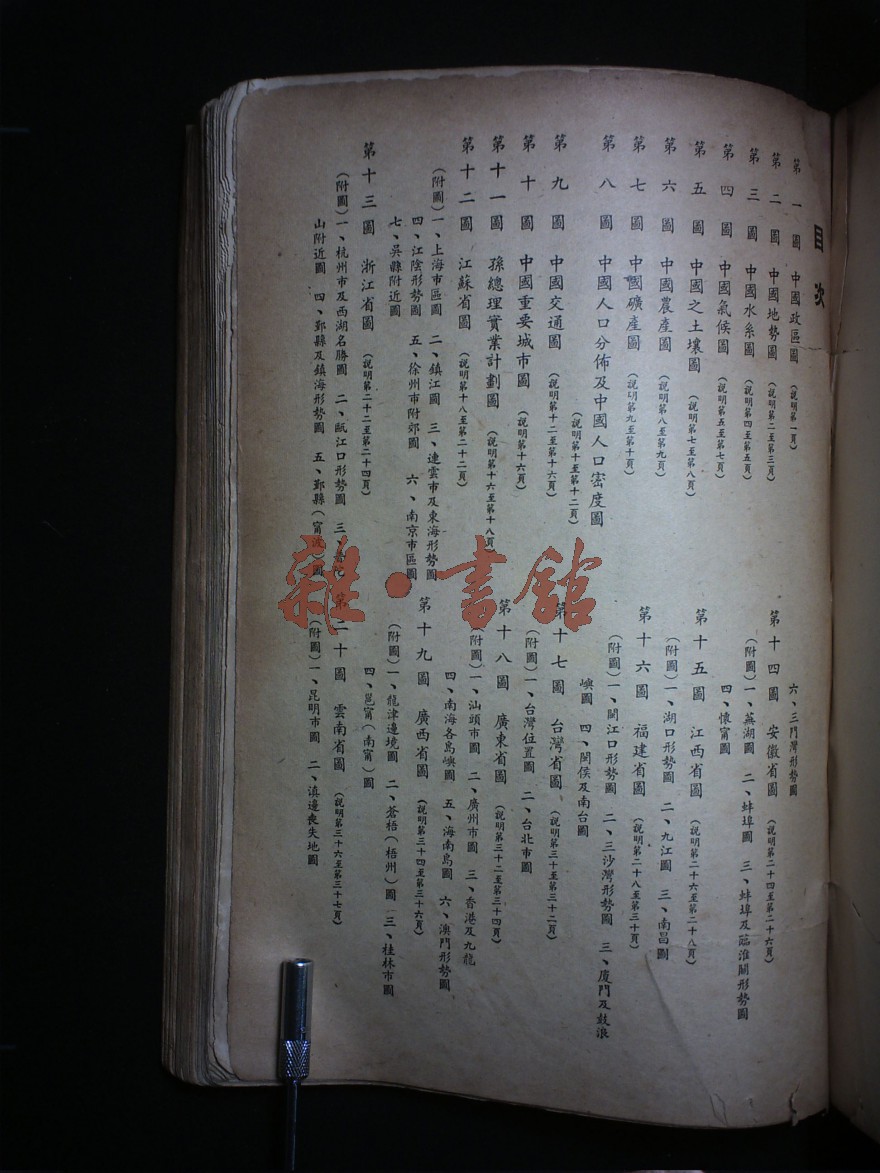 目次
第一圖 中國政區圖 (說明第一頁)
第二圖 中國地勢圖 (說明第二至第三頁)
第三圖 中國水系圖 (說明第四至第五頁)
第四圖 中國氣候圖 (說明第五至第七頁)
第五圖 中國之土壤圖 (說明第七至第八頁)
第六圖 中國農產圖 (說明第八至第九頁)
第七圖 中國礦產圖 (說明第九至第十頁)
第八圖 中國人口分佈及中國人口密度圖
(說明第十至第十二頁)
第九圖 中國交通圖 (說明第十二至第十六頁)
第十圖 中國重要城市圖 (說明第十六頁)
第十一圖 孫總理實業計劃圖 (說明第十六至第十八頁)
第十二圖 江蘇省圖 (說明第十八至第二十二頁)
(附圖)一、上海市區圖 二、鎮江圖 三、連雲市及東海形勢圖
四、江陰形勢圖 五、徐州市附郊圖 六、南京市區圖
七、吳縣附近圖
第十三圖 浙江省圖 (說明第二十二至第二十四頁)
(附圖)一、杭州市及西湖名勝圖 二、甌江口形勢圖 三、普陀
山附近圖 四、鄞縣及鎮海形勢圖 五、鄞縣(甯波)圖
六、三門灣形勢圖
第十四圖 安徽省圖 (說明第二十四至第二十六頁)
(附圖)一、蕪湖圖 二、蚌埠圖 三、蚌埠及臨淮關形勢圖
四、懷甯圖
第十五圖 江西省圖 (說明第二十六至第二十八頁)
(附圖)一、湖口形勢圖 二、九江圖 三、南昌圖
第十六圖 福建省圖 (說明第二十八至第三十頁)
(附圖)一、閩江口形勢圖 二、三沙灣形勢圖 三、廈門及鼓浪
嶼圖 四、閩侯及南台圖
第十七圖 台灣省圖 (說明第三十至第三十二頁)
(附圖)一、台灣位置圖 二、台北市圖
第十八圖 廣東省圖 (說明第三十二至第三十四頁)
(附圖)一、汕頭市圖 二、廣州市圖 三、香港及九龍
四、南海各島嶼圖 五、海南島圖 六、澳門形勢圖
第十九圖 廣西省圖 (說明第三十四至第三十六頁)
(附圖)一、龍津邊境圖 二、蒼梧(梧州)圖 三、桂林市圖
四、邕甯(南甯)圖
第二十圖 雲南省圖 (說明第三十六至第三十七頁)
(附圖)一、昆明市圖 二、滇邊喪失地圖
雜·書館